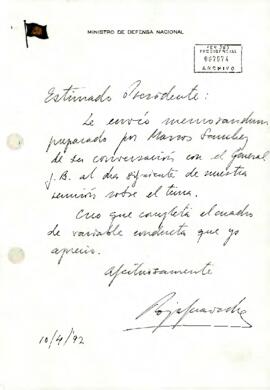 MINISTRO DE DEFENSA NACIONAL
PERIODO
PRESIDENCIAL
007074
ARCHIVO
Estimado Presidente:
Le envío memorandum
preparado por Marcos Sánchez
de su conversación con el General
J.B. al día siguiente de nuestra
reunión sobre el tema.
Creo que completa el cuadro
de variable conducta que yo
aprecio.
Afectuosamente
10/4/92